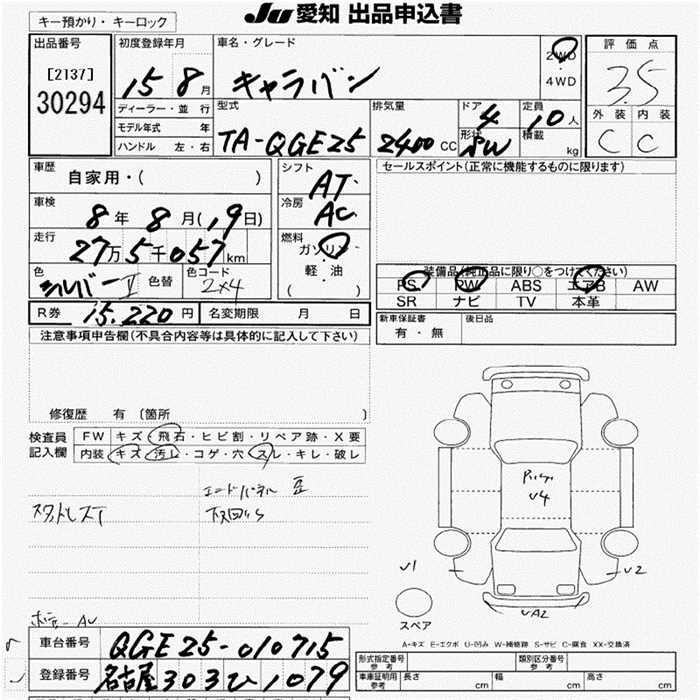 JU 愛知 出品申込書
キー預かり・キーロック
出品番号
[2137]
30294
初度登録年月
15 8 月
ディーラー・並 行
モデル年式 年
ハンドル 左・右
車名・グレード
キャラバン
2WD
・
4WD
型式
TA-QGE25
排気量
2400 CC
ドア
4
形状
SW
定員
10 人
積載
kg
評価点
3.5
外装 内装
C C
車歴
自家用・( )
車検
8 年 8 月 (19日)
走行
27万 5千 057 km
色
シルバーII 色替
色コード
2×4
R券 15,220 円 名変期限 月 日
シフト
AT
冷房
AC
燃料
ガソリン
・
軽・油
( )
セールスポイント(正常に機能するものに限ります)
装備品(純正品に限り○をつけてください)
PS PW ABS エアB AW
SR ナビ TV 本革
新車保証書
有・無
後日品
注意事項申告欄(不具合内容等は具体的に記入して下さい)
修復歴 有 〔箇所 〕
検査員
記入欄
FW キズ・飛石・ヒビ割・リペア跡・X要
内装 キズ・汚レ・コゲ・穴・スレ・キレ・破レ
エンドパネル
下回り
U4
U1
U2
UA2
スペア
A-キズ E-エクボ U-凹み W-補修跡 S-サビ C-腐食 XX-交換済
車台番号 QGE25-010715
登録番号 名古屋 303 ひ 1079
形式指定番号
参考
類別区分番号
参考
車庫証明用
参考
長さ cm 幅 cm 高さ cm